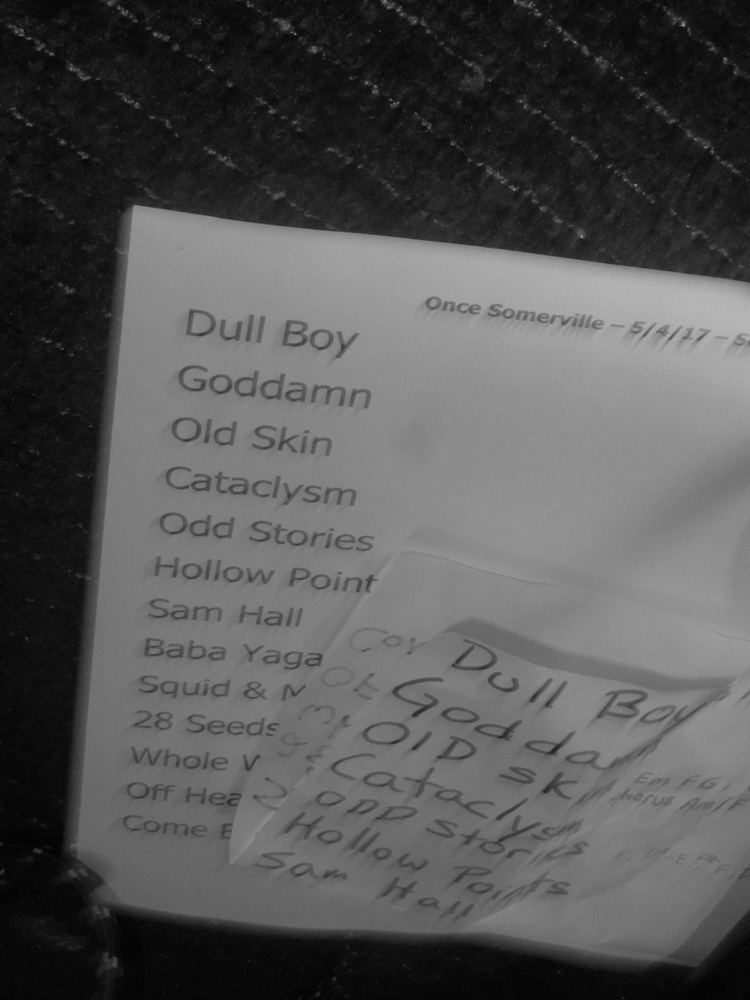 Once Somerville – 5/4/17 –
Dull Boy
Goddamn
Old Skin
Cataclysm
Odd Stories
Hollow Point
Sam Hall
Baba Yaga
Squid &
28 Seeds
Whole
Off
Come
Dull Boy
Goddam
OlD sk
Em FG,
Cataclysm
Am/F
ODD stories
Hollow Points
Sam Hall